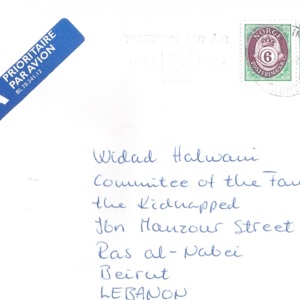 PRIORITAIRE
PAR AVION
BL.70.341.12
NORGE
6
POSTFRIM
Widad Halwani
Committee of the Fam
the Kidnapped
Ibn Manzour Street
Ras al-Nabei
Beirut
LEBANON